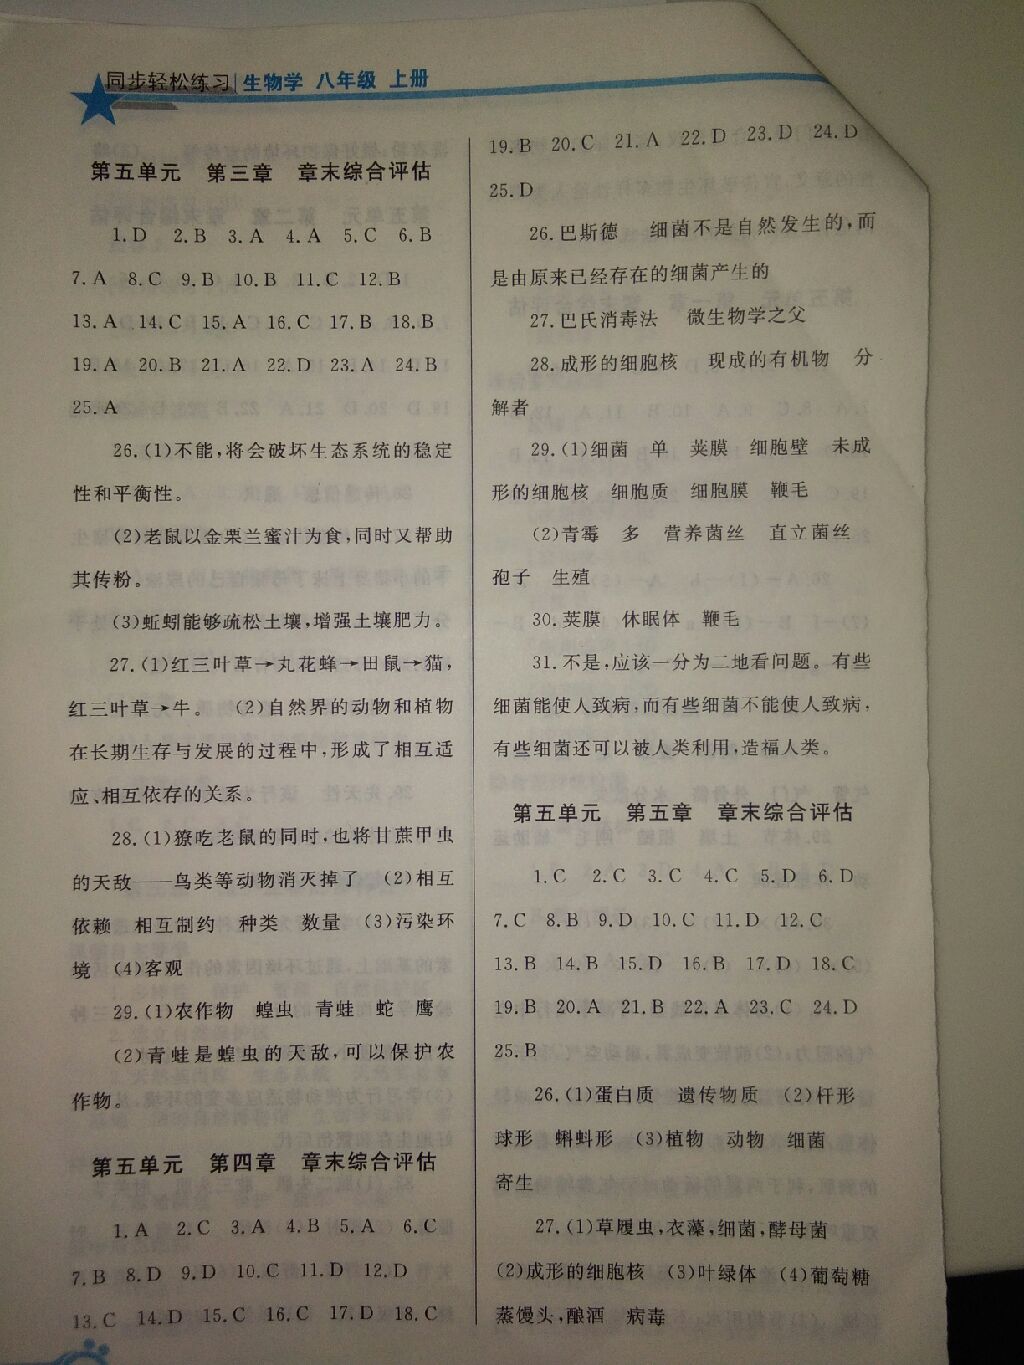 同步轻松练习 生物学 八年级 上册
第五单元 第三章 章末综合评估
1.D 2.B 3.A 4.A 5.C 6.B
7.A 8.C 9.B 10.B 11.C 12.B
13.A 14.C 15.A 16.C 17.B 18.B
19.A 20.B 21.A 22.D 23.A 24.B
25.A
26.(1)不能,将会破坏生态系统的稳定
性和平衡性。
(2)老鼠以金栗兰蜜汁为食,同时又帮助
其传粉。
(3)蚯蚓能够疏松土壤,增强土壤肥力。
27.(1)红三叶草→丸花蜂→田鼠→猫,
红三叶草→牛。 (2)自然界的动物和植物
在长期生存与发展的过程中,形成了相互适
应、相互依存的关系。
28.(1)獴吃老鼠的同时,也将甘蔗甲虫
的天敌——鸟类等动物消灭掉了 (2)相互
依赖 相互制约 种类 数量 (3)污染环
境 (4)客观
29.(1)农作物 蝗虫 青蛙 蛇 鹰
(2)青蛙是蝗虫的天敌,可以保护农
作物。
第五单元 第四章 章末综合评估
1.A 2.C 3.A 4.B 5.A 6.C
7.B 8.D 9.D 10.C 11.D 12.D
13.C 14.D 15.C 16.C 17.D 18.C
19.B 20.C 21.A 22.D 23.D 24.D
25.D
26.巴斯德 细菌不是自然发生的,而
是由原来已经存在的细菌产生的
27.巴氏消毒法 微生物学之父
28.成形的细胞核 现成的有机物 分
解者
29.(1)细菌 单 荚膜 细胞壁 未成
形的细胞核 细胞质 细胞膜 鞭毛
(2)青霉 多 营养菌丝 直立菌丝
孢子 生殖
30.荚膜 休眠体 鞭毛
31.不是,应该一分为二地看问题。有些
细菌能使人致病,而有些细菌不能使人致病,
有些细菌还可以被人类利用,造福人类。
第五单元 第五章 章末综合评估
1.C 2.C 3.C 4.C 5.D 6.D
7.C 8.B 9.D 10.C 11.D 12.C
13.B 14.B 15.D 16.B 17.D 18.C
19.B 20.A 21.B 22.A 23.C 24.D
25.B
26.(1)蛋白质 遗传物质 (2)杆形
球形 蝌蚪形 (3)植物 动物 细菌
寄生
27.(1)草履虫,衣藻,细菌,酵母菌
(2)成形的细胞核 (3)叶绿体 (4)葡萄糖
蒸馒头,酿酒 病毒